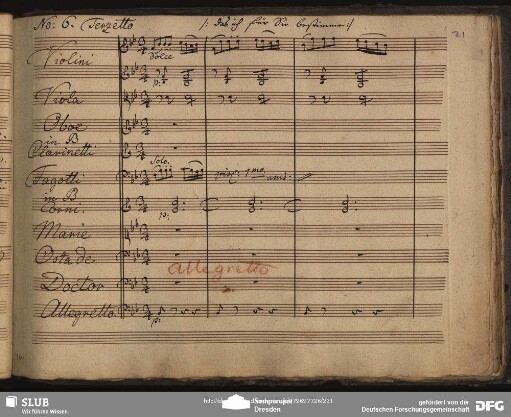 No: 6. Terzetto
/: das ich für Sie bestimme :/
21
Violini
dolce
p.
Viola
Oboe
in B
Clarinetti
Solo.
Fagotti
in B
Corni.
p:
Marie
Doctor
Allegretto
Allegretto.
p:
SLUB
Wir führen Wissen.
Dresden
gefördert von der
Deutschen Forschungsgemeinschaft
DFG